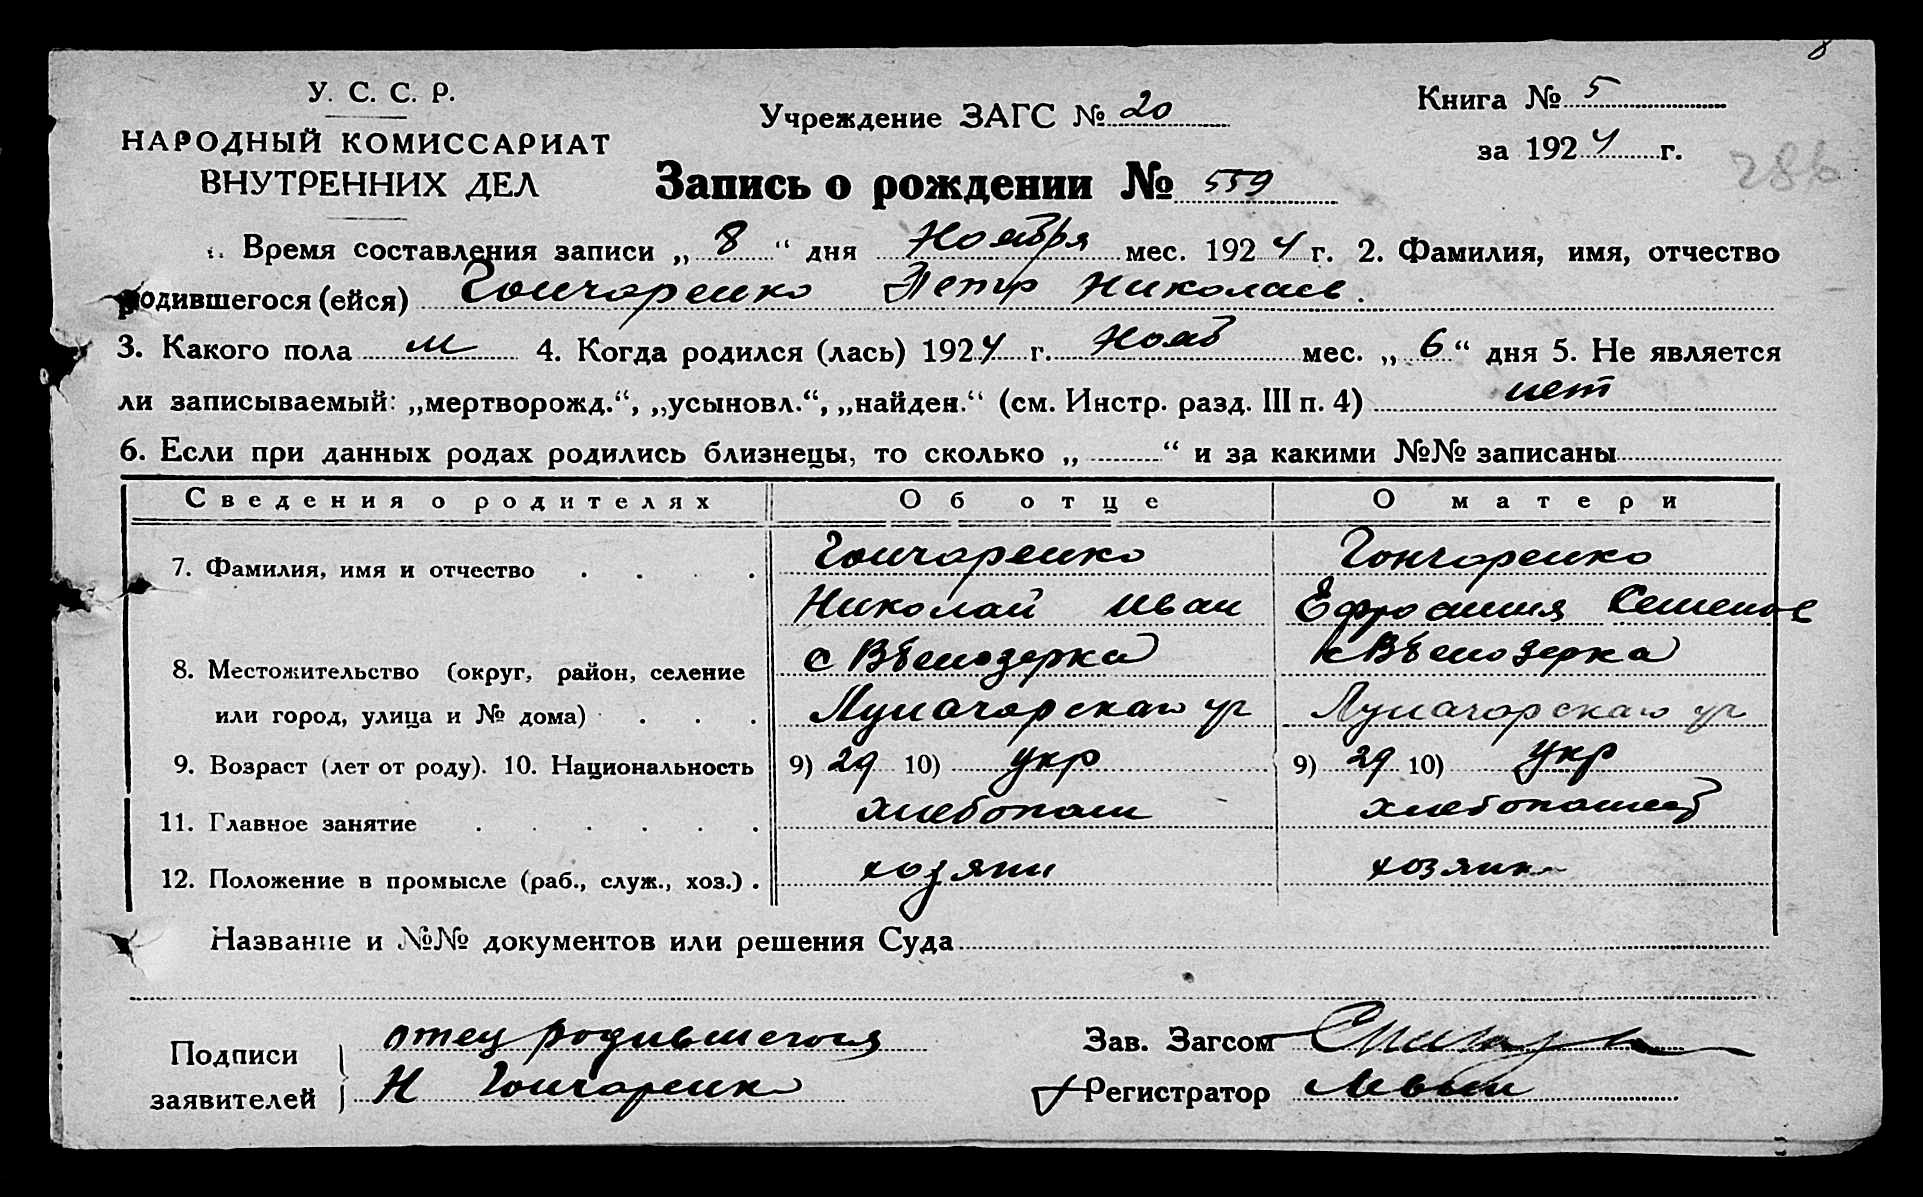 8
У. С. С. Р.
НАРОДНЫЙ КОМИССАРИАТ
ВНУТРЕННИХ ДЕЛ
Учреждение ЗАГС № 20
Книга № 5
за 1924 г.
286
Запись о рождении № 559
1. Время составления записи „ 8 “ дня Ноября мес. 1924 г. 2. Фамилия, имя, отчество
родившегося (ейся) Гончаренко Петр Николаев.
3. Какого пола м 4. Когда родился (лась) 1924 г. Нояб мес. „ 6 “ дня 5. Не является
ли записываемый: „мертворожд.“, „усыновл.“, „найден.“ (см. Инстр. разд. III п. 4) нет
6. Если при данных родах родились близнецы, то сколько „ “ и за какими №№ записаны
Сведения о родителях Об отце О матери
7. Фамилия, имя и отчество Гончаренко Гончаренко
Николай Иван Ефросиния Семенов
8. Местожительство (округ, район, селение с Вбелозерка с Вбелозерка
или город, улица и № дома)
9. Возраст (лет от роду). 10. Национальность 9) 29 10) укр 9) 29 10) укр
11. Главное занятие хлебопаш хлебопашеб
12. Положение в промысле (раб., служ., хоз.) хозяин хозяин
Название и №№ документов или решения Суда
Подписи отец родившегося
заявителей Н Гончаренко
Зав. Загсом
Регистратор